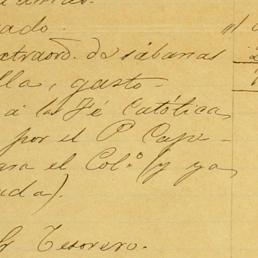 ado.
extraord. de sábanas
lla, gasto
a la Fé Católica
por el P. Cape-
ara el Col.º (y ya
uda).
Tesorero.